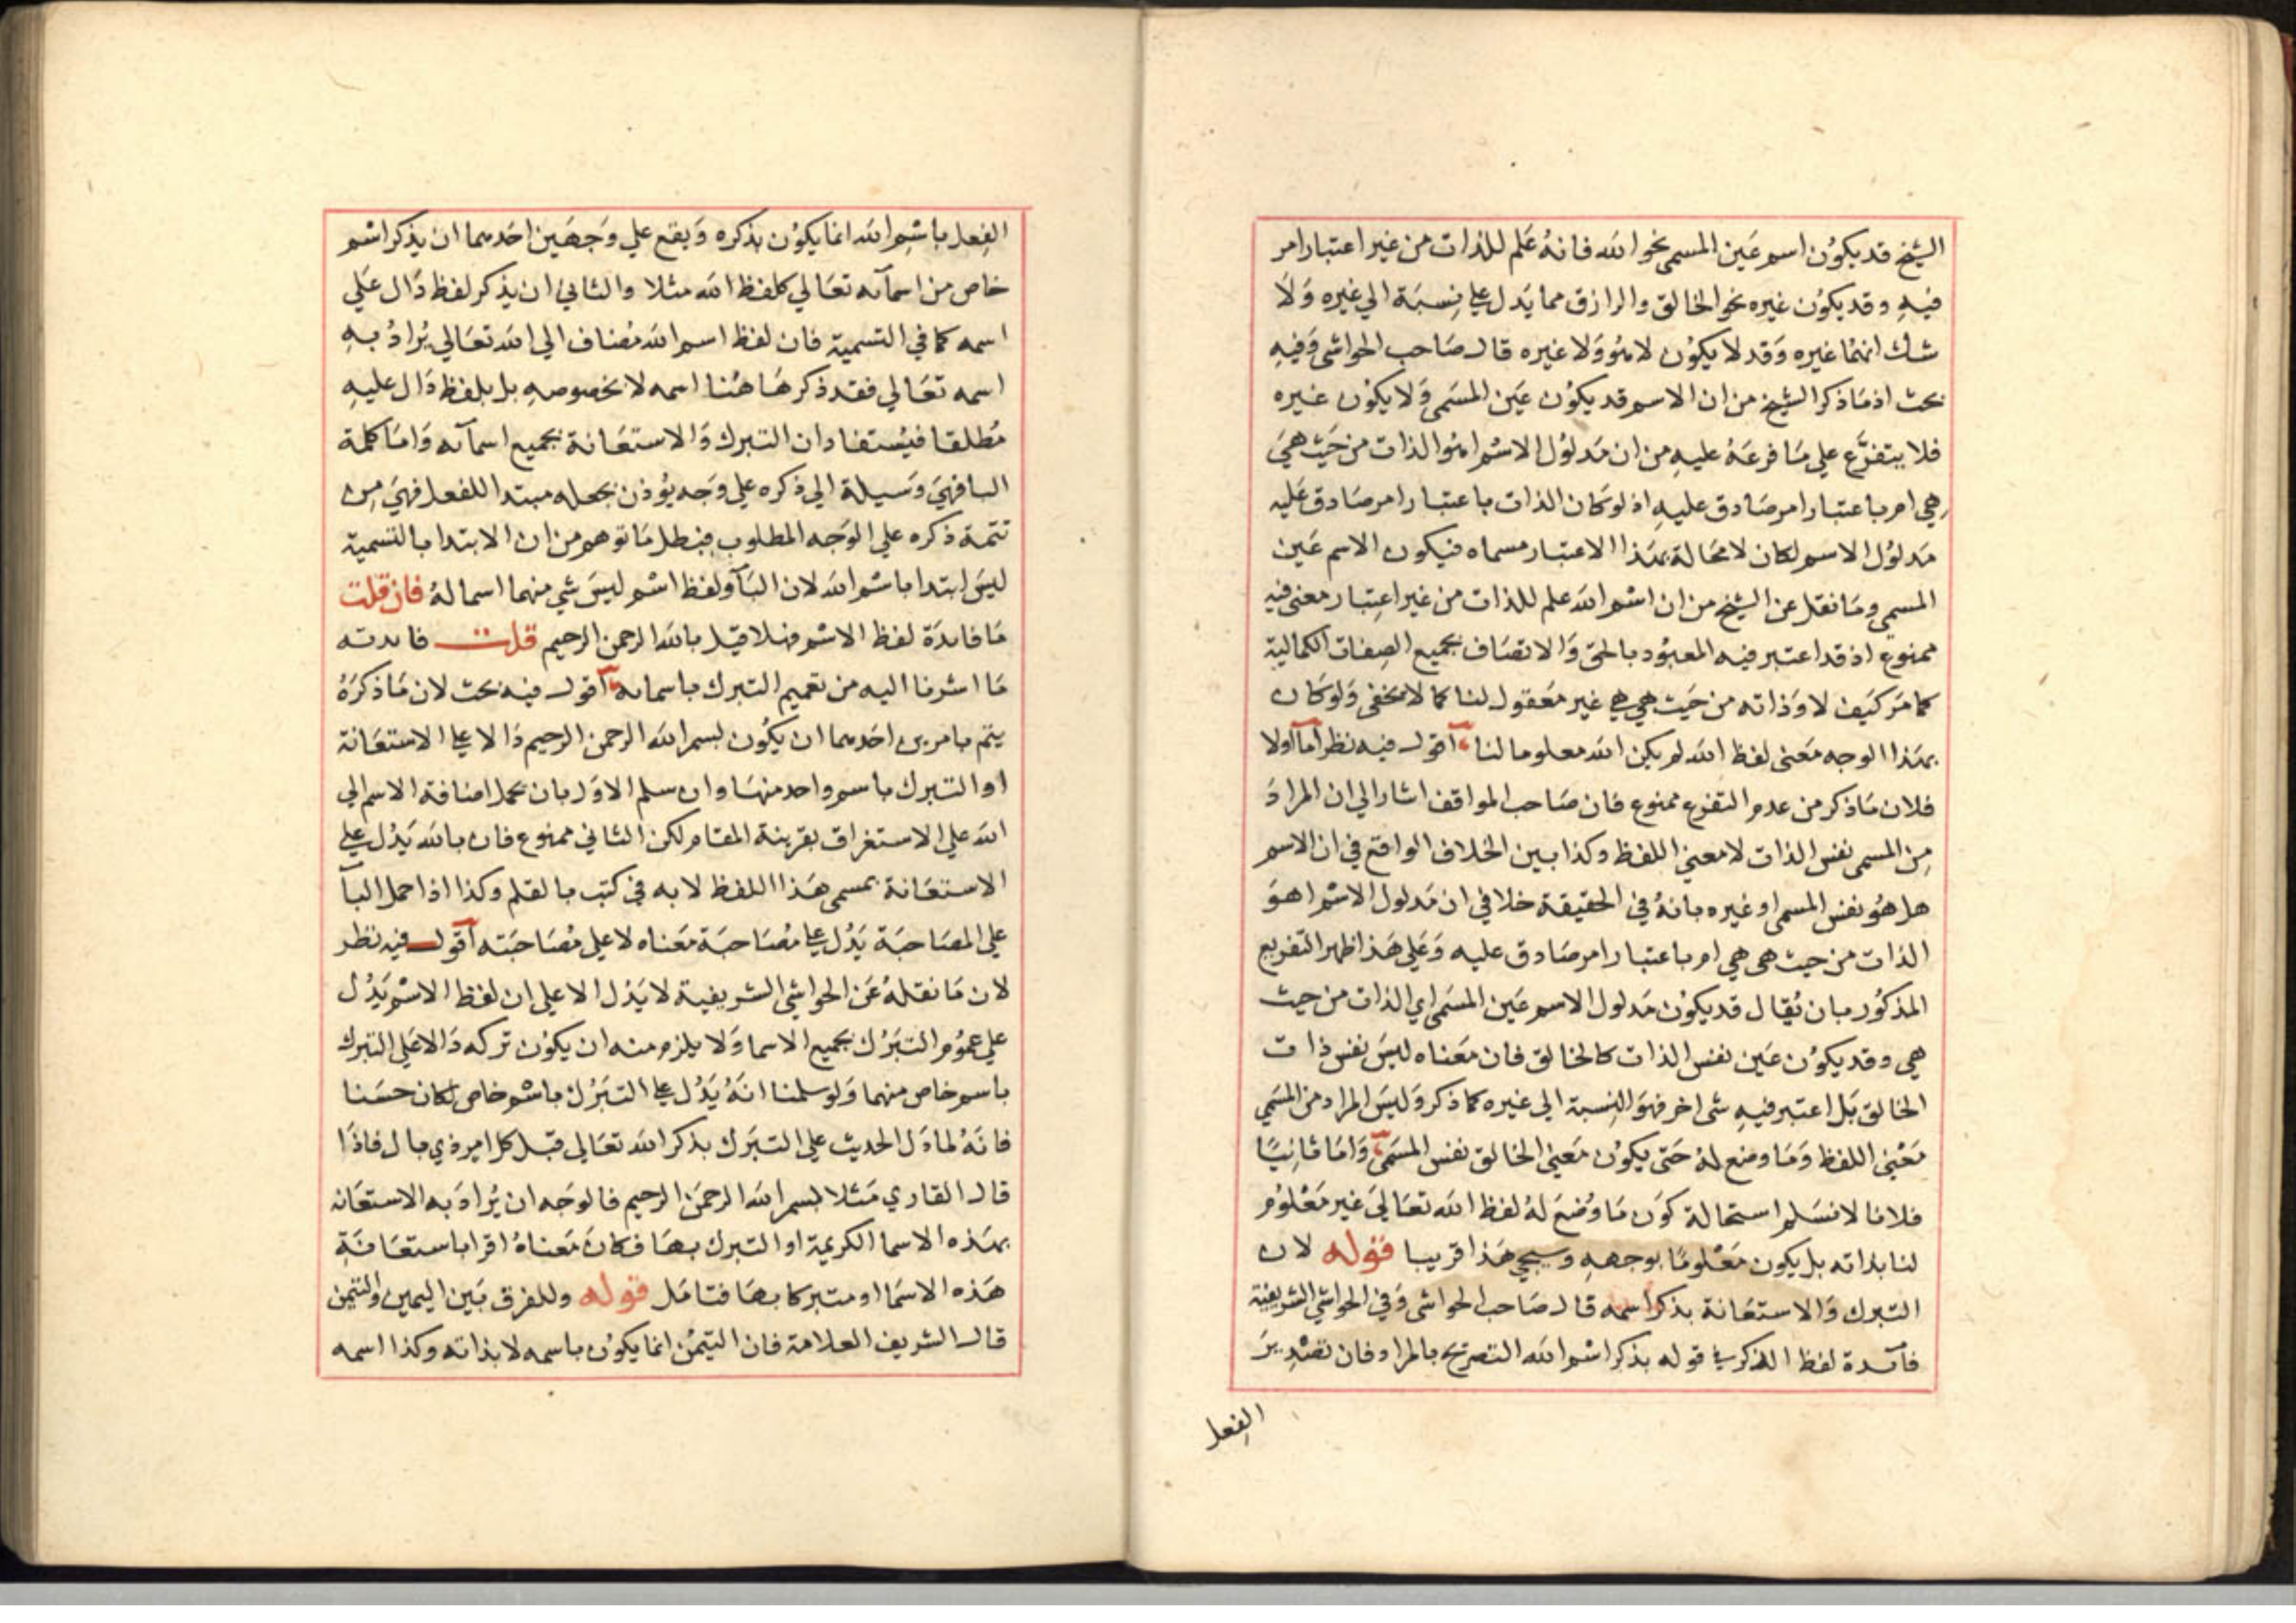 الشيخ قد يكون اسم عين المسمى نحو الله فانه علم للذات من غير اعتبار امر
فيه وقد يكون غيره نحو الخالق والرازق مما يدل على نسبة الي غيره ولا
شك انهما غيره وقد لا يكون لا هو ولا غيره قال صاحب الحواشي وفيه
بحث اذ ما ذكر الشيخ من ان الاسم قد يكون عين المسمى ولا يكون غيره
فلا يتفرع علي ما فرعه عليه من ان مدلول الاسم اهو الذات من حيث هي
هي ام باعتبار امر صادق عليه اذ لو كان الذات باعتبار امر صادق عليه
مدلول الاسم لكان لا محالة بهذا الاعتبار مسماه فيكون الاسم عين
المسمي وما نقل عن الشيخ من ان اسم الله علم للذات من غير اعتبار معنى فيه
ممنوع اذ قد اعتبر فيه المعبود بالحق والاتصاف بجميع الصفات الكمالية
كما مر كيف لا وذاته من حيث هي هي غير معقول لنا كما لا يخفى ولو كان
بهذا الوجه معنى لفظ الله لم يكن الله معلوما لنا اقول فيه نظر اما اولا
فلان ما ذكر من عدم التفرع ممنوع فان صاحب المواقف اشار الي ان المراد
من المسمى نفس الذات لا معني اللفظ وكذا بين الخلاف الواقع في ان الاسم
هل هو نفس المسمى او غيره بانه في الحقيقة خلاف في ان مدلول الاسم اهو
الذات من حيث هي هي ام باعتبار امر صادق عليه وعلي هذا ظهر التفريع
المذكور بان يقال قد يكون مدلول الاسم عين المسمى اي الذات من حيث
هي وقد يكون عين نفس الذات كالخالق فان معناه ليس نفس ذات
الخالق بل اعتبر فيه شى اخر فهو النسبة الي غيره كما ذكر وليس المراد من المسمي
معني اللفظ وما وضع له حتى يكون معني الخالق نفس المسمى واما ثانيا
فلانا لا نسلم استحالة كون ما وضع له لفظ الله تعالي غير معلوم
لنا بذاته بل يكون معلوما بوجهه وسيجي هذا قريبا قوله لان
التبرك والاستعانة بذكر اسمه قال صاحب الحواشى وفي الحواشي الشريفية
فائدة لفظ الذكر في قوله بذكر اسم الله التصريح بالمراد فان تصدير
الفعل
الفعل باسم الله انما يكون بذكره ويقع علي وجهين احدهما ان يذكر اسم
خاص من اسمائه تعالي كلفظ الله مثلا والثاني ان يذكر لفظ دال علي
اسمه كما في التسمية فان لفظ اسم الله مضاف الي الله تعالي يراد به
اسمه تعالي فقد ذكر ها هنا اسمه لا بخصوصه بل بلفظ دال عليه
مطلقا فيستفاد ان التبرك والاستعانة بجميع اسمائه واما كلمة
البا فهي وسيلة الي ذكره علي وجه يؤذن بجعله مبتدا للفعل فهي من
تتمة ذكره علي الوجه المطلوب فبطل ما توهم من ان الابتدا بالتسمية
ليس ابتدا باسم الله لان البآ ولفظ اسم ليس شي منهما اسما له فان قلت
ما فائدة لفظ الاسم فهلا قيل بالله الرحمن الرحيم قلت فائدته
ما اشرنا اليه من تعميم التبرك باسمائه اقول فيه بحث لان ما ذكره
يتم بامرين احدهما ان يكون بسم الله الرحمن الرحيم دالا علي الاستعانة
او التبرك باسم واحد منها وان سلم الاول بان يحمل اضافة الاسم الي
الله علي الاستغراق بقرينة المقام لكن الثاني ممنوع فان بالله يدل علي
الاستعانة بمسمى هذا اللفظ لا به في كتب بالقلم وكذا اذا حمل البآ
علي المصاحبة يدل علي مصاحبة معناه لا علي مصاحبته اقول فيه نظر
لان ما نقله عن الحواشي الشريفية لا يدل الا علي ان لفظ الاسم يدل
علي عموم التبرك بجميع الاسما ولا يلزم منه ان يكون تركه دالا علي التبرك
باسم خاص منهما ولو سلمنا انه يدل علي التبرك باسم خاص لكان حسنا
فانه لما دل الحديث علي التبرك بذكر الله تعالي قبل كل امر ذي بال فاذا
قال القاري مثلا بسم الله الرحمن الرحيم فالوجه ان يراد به الاستعانه
بهذه الاسما الكريمة او التبرك بها فكان معناه اقرا باستعانة
هذه الاسما او متبركا بها فتامل قوله وللفرق بين اليمين والتيمن
قال الشريف العلامة فان التيمن انما يكون باسمه لا بذاته وكذا اسمه